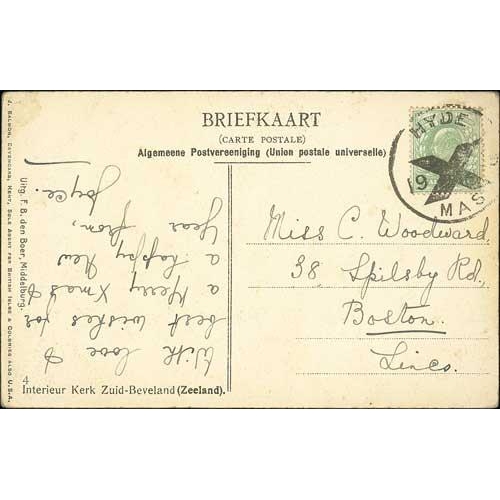 BRIEFKAART
(CARTE POSTALE)
Algemeene Postvereeniging (Union postale universelle)
HYDE
19
MAS
Miss C. Woodward
38 Spilsby Rd,
Boston.
Lincs.
With love &
best wishes for
a Merry Xmas &
a happy New
Year from,
Joyce.
4
Interieur Kerk Zuid-Beveland (Zeeland).
Uitg. F. B. den Boer, Middelburg.
J. SALMON, SEVENOAKS, KENT, SOLE AGENT FOR BRITISH ISLES & COLONIES ALSO U.S.A.